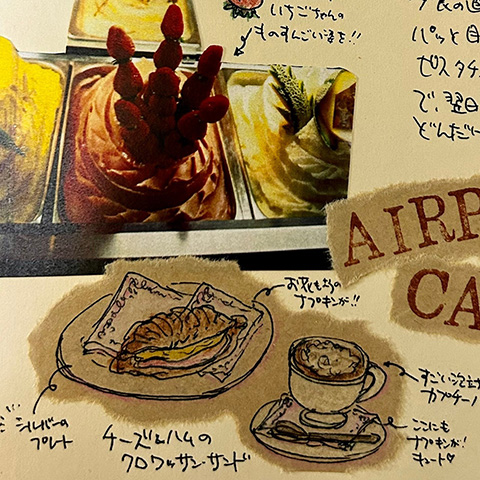 いちごちゃんの
ものすんごい姿を!!
の直
パッと目
ピスタチ
で、翌日
どんだけ
AIRP
CA
お花もちの
ナプキンが!!
シルバーの
プレート
チーズ&ハムの
クロワッサン・サンド
すごい泡立
カプチーノ
ここにも
ナプキンが!
キュート♡